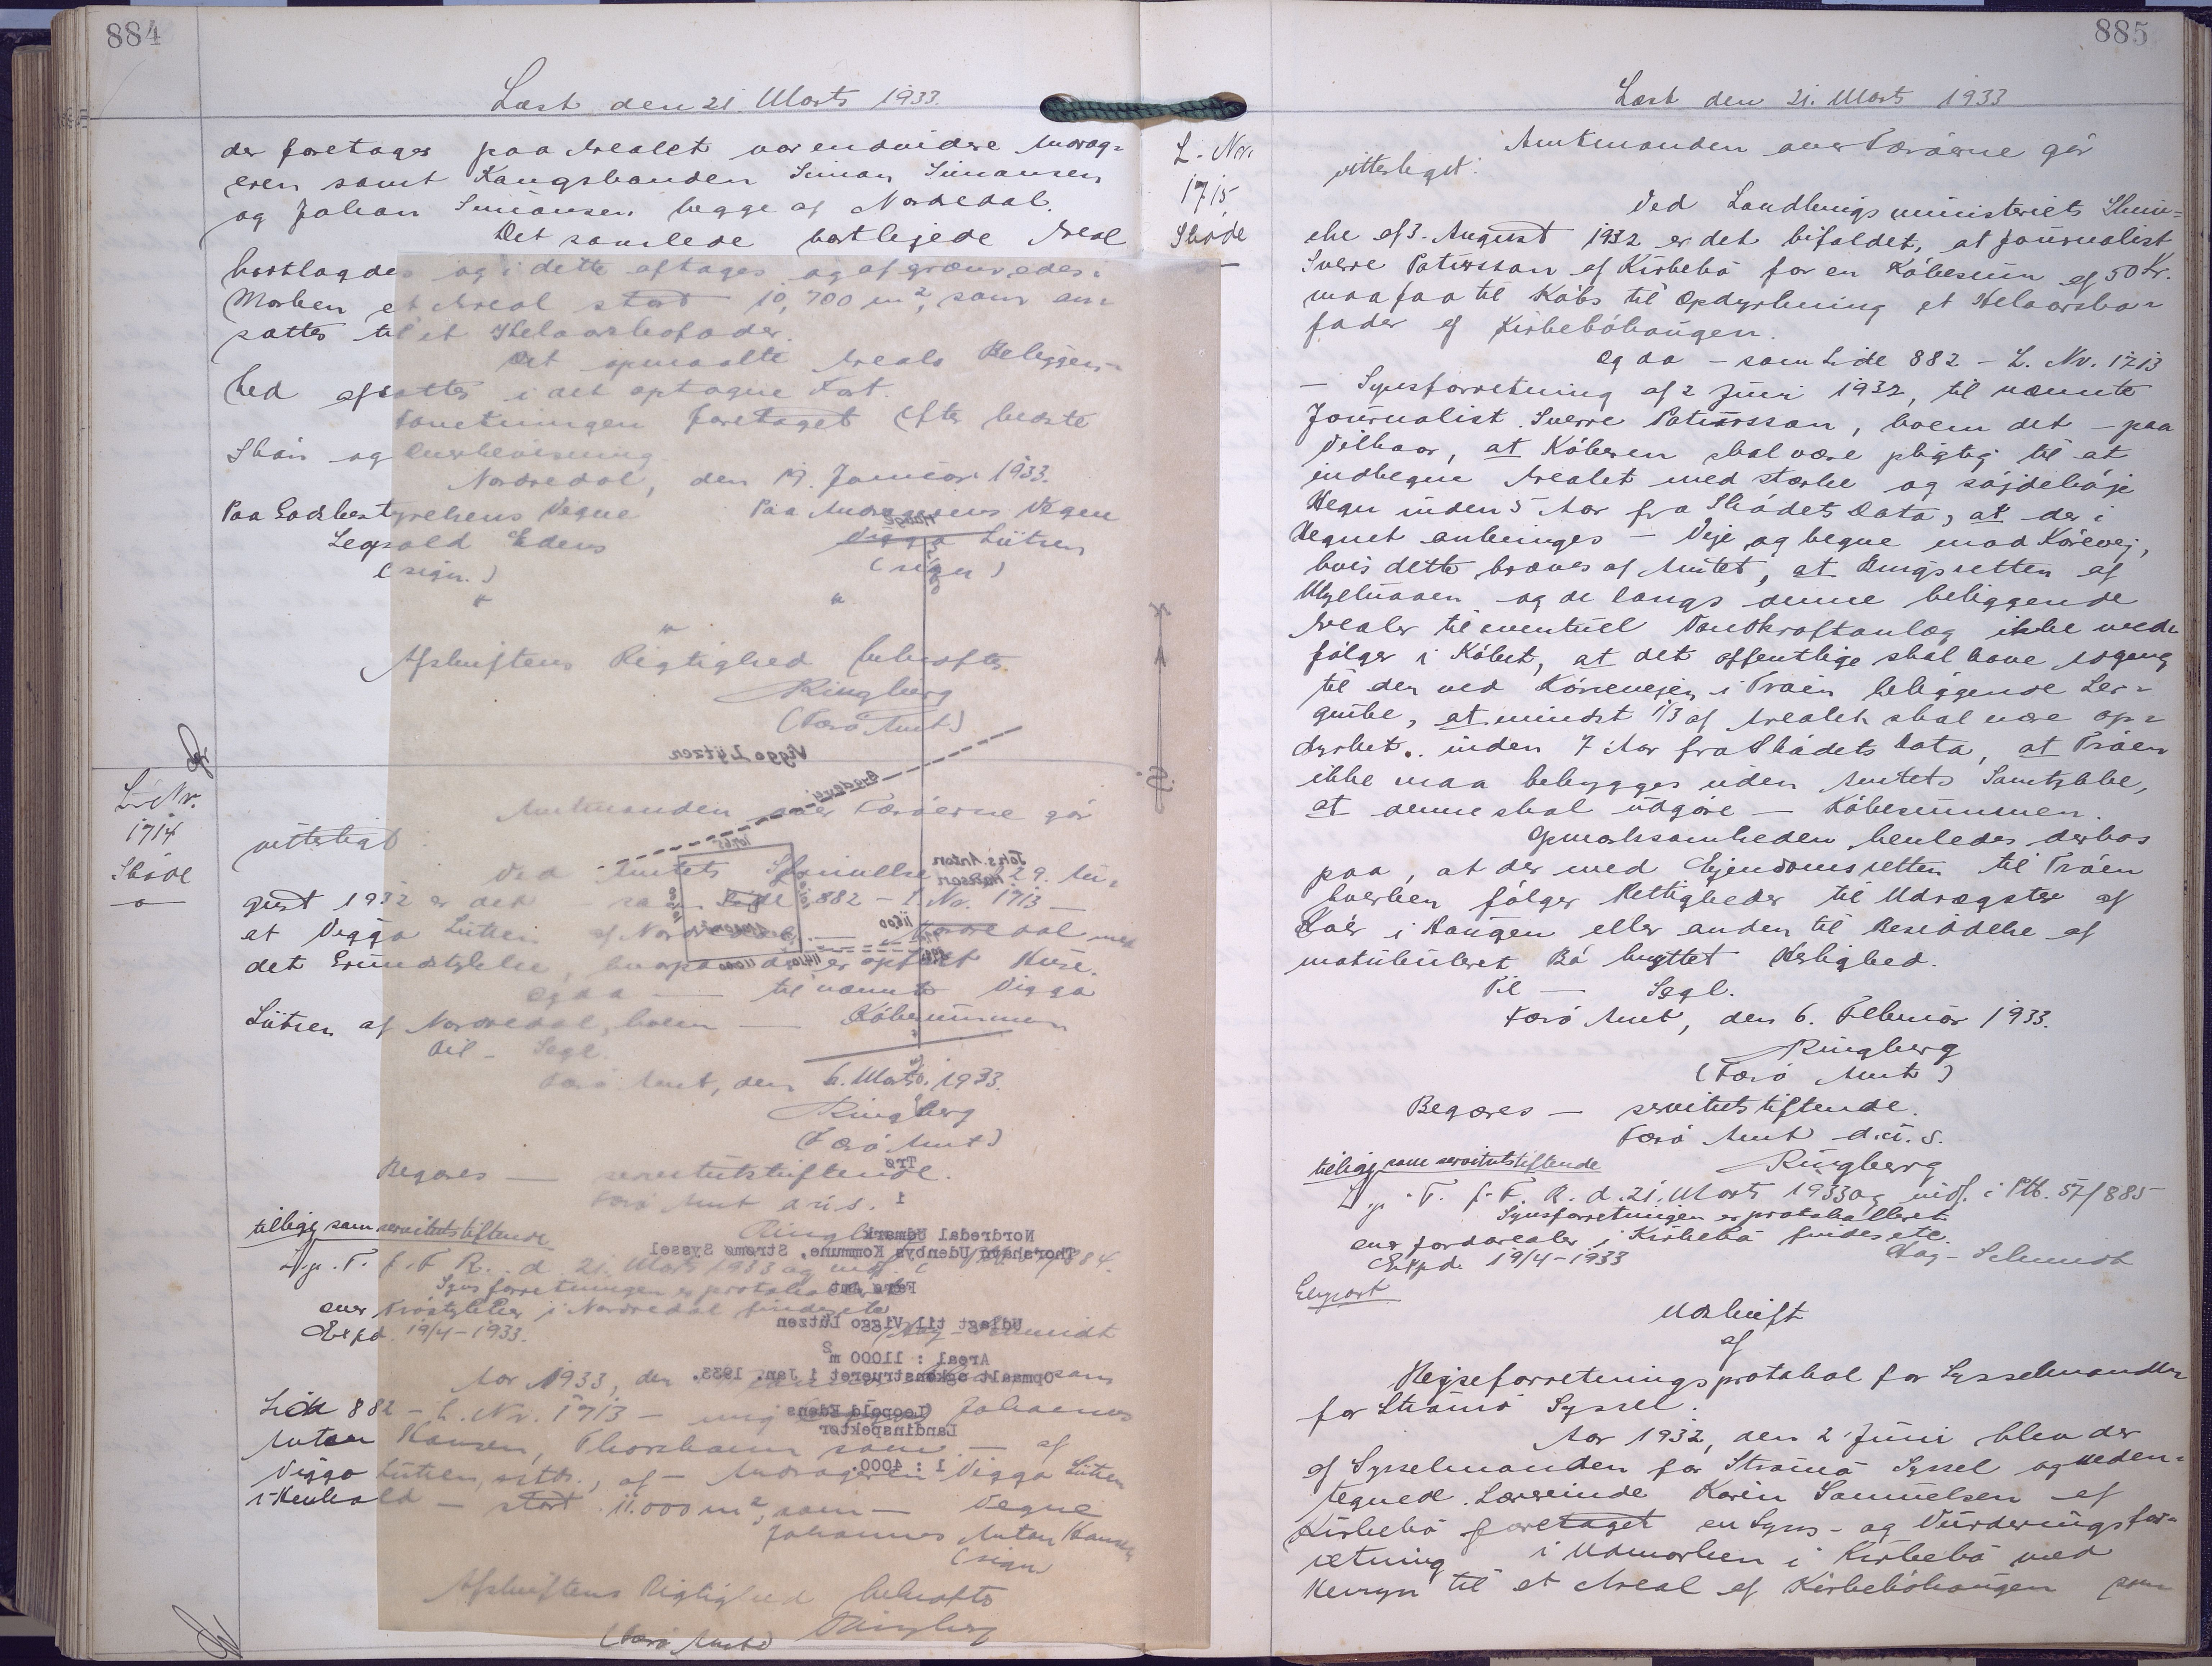 884
Læst den 21. Marts 1933.
der foretages paa Arealet var endvidere Andrag-
eren samt Kongsbonden Simon Simonsen
og Johan Simonsen begge af Nordredal.
Det samlede bortlejede Areal
bortlagdes og i dette aftages og afgrænsedes i
Marken et Areal stort 10,700 m², som an-
sattes til et Helaarskofoder.
Det opmaalte Areals Beliggen-
hed afsattes i det optagne Kort.
Forretningen foretaget efter bedste
Skøn og Overbevisning
Nordredal, den 19. Januar 1933.
Paa Lodsbestyrelsens Vegne Paa Andragerens Vegne
Leopold Edens Viggo Lützen
(sign.) (sign)
Afskriftens Rigtighed bekræftes
Ringberg
(Færø Amt)
Viggo Lützen
L. Nr.
1714
Skøde
Amtmanden over Færøerne gør
vitterligt:
Ved Amtets Skrivelse af 29. Au-
gust 1932 er det - som Side 882 - L. Nr. 1713 -
at Viggo Lützen af Nordredal — Nordredal med
det Grundstykke, hvorpaa der er opført Huse.
Og da — til nævnte Viggo
Lützen af Nordredal, hvem — Købesummen
Til - Segl.
Færø Amt, den 6. Marts 1933.
Ringberg
(Færø Amt)
Begæres — servitutstiftende.
Færø Amt d.u.s.
Ringberg
tillige som servitutstiftende
L. p. T. f. F. R. d. 21. Marts 1933 og indf. i
Synsforretningen er protokolleret
over Trøstykker i Nordredal findes etc.
Expd. 19/4-1933.
Aar 1933, den
Side 882 - L. Nr. 1713 - mig Johannes
Anton Hansen, Thorshavn som — af
Viggo Lützen, af - Andrageren Viggo Lützen
i Henhold — stort 11.000 m², som — Vegne
Johannes Anton Hansen
(sign)
Afskriftens Rigtighed bekræftes
Ringberg
(Færø Amt)
Bradevej
Johs. Anton
Hansen
Trø
1
Nordredal Udmark
Thorshavn Udenbys Kommune, Strømø Syssel
Færø Amt
Udlagt til Viggo Lützen
Areal : 11000 m²
Opmaalt og konstrueret i Jan. 1933.
(Leopold Edens
Landinspektør
1 : 4000.
885
Læst den 21. Marts 1933
L. Nr.
1715
Skøde
Amtmanden over Færøerne gør
vitterligt:
Ved Landbrugsministeriets Skriv-
else af 3. August 1932 er det bifaldet, at Journalist
Sverre Patursson af Kirkebø for en Købesum af 50 Kr.
maa faa til Købs til Opdyrkning et Helaarsko-
foder af Kirkebøhaugen.
Og da - som Side 882 - L. Nr. 1713
- Synsforretning af 2 Juni 1932, til nævnte
Journalist Sverre Patursson, hvem det - paa
Vilkaar, at Køberen skal være pligtig til at
indhegne Arealet med stærke og søjdehøje
Hegn inden 5 Aar fra Skødets Data, at der i
Hegnet anbringes - Veje og hegne mod Kørevej,
hvis dette kræves af Amtet, at Brugsretten af
og de langs denne beliggende
Arealer til eventuel Vandkraftanlæg ikke med-
følger i Købet, at det offentlige skal have Adgang
til den ved Kørevejen i Trøen beliggende Ler-
grube, at mindst 1/3 af Arealet skal være op-
dyrket inden 7 Aar fra Skødets Data, at Trøen
ikke maa bebygges uden Amtets Samtykke,
at denne skal udgøre - Købesummen.
Opmærksomheden henledes derhos
paa, at der med Ejendomsretten til Trøen
hverken følger Rettigheder til Udrægster af
Køer i Haugen eller anden til Besiddelse af
matrikuleret Bø knyttet Herlighed.
Til — Segl.
Færø Amt, den 6. Februar 1933.
Ringberg
(Færø Amt)
Begæres — servitutstiftende.
Færø Amt d.u.s.
Ringberg
tillige som servitutstiftende
L. p. T. f. F. R. d. 21. Marts 1933 og indf. i Ptb. 57/885
Synsforretningen er protokolleret
over Jordarealer i Kirkebø findes etc.
Expd. 19/4-1933 Aag-Schmidt
Genpart
Udskrift
af
Hegseforretningsprotokol for Sysselmanden
for Strømø Syssel.
Aar 1932, den 2 Juni blev der
af Sysselmanden for Strømø Syssel og neden-
tegnede Lærerinde Karin Samuelsen af
Kirkebø foretaget en Syns- og Vurderingsfor-
retning i Udmarken i Kirkebø med
Hensyn til et Areal af Kirkebøhaugen som